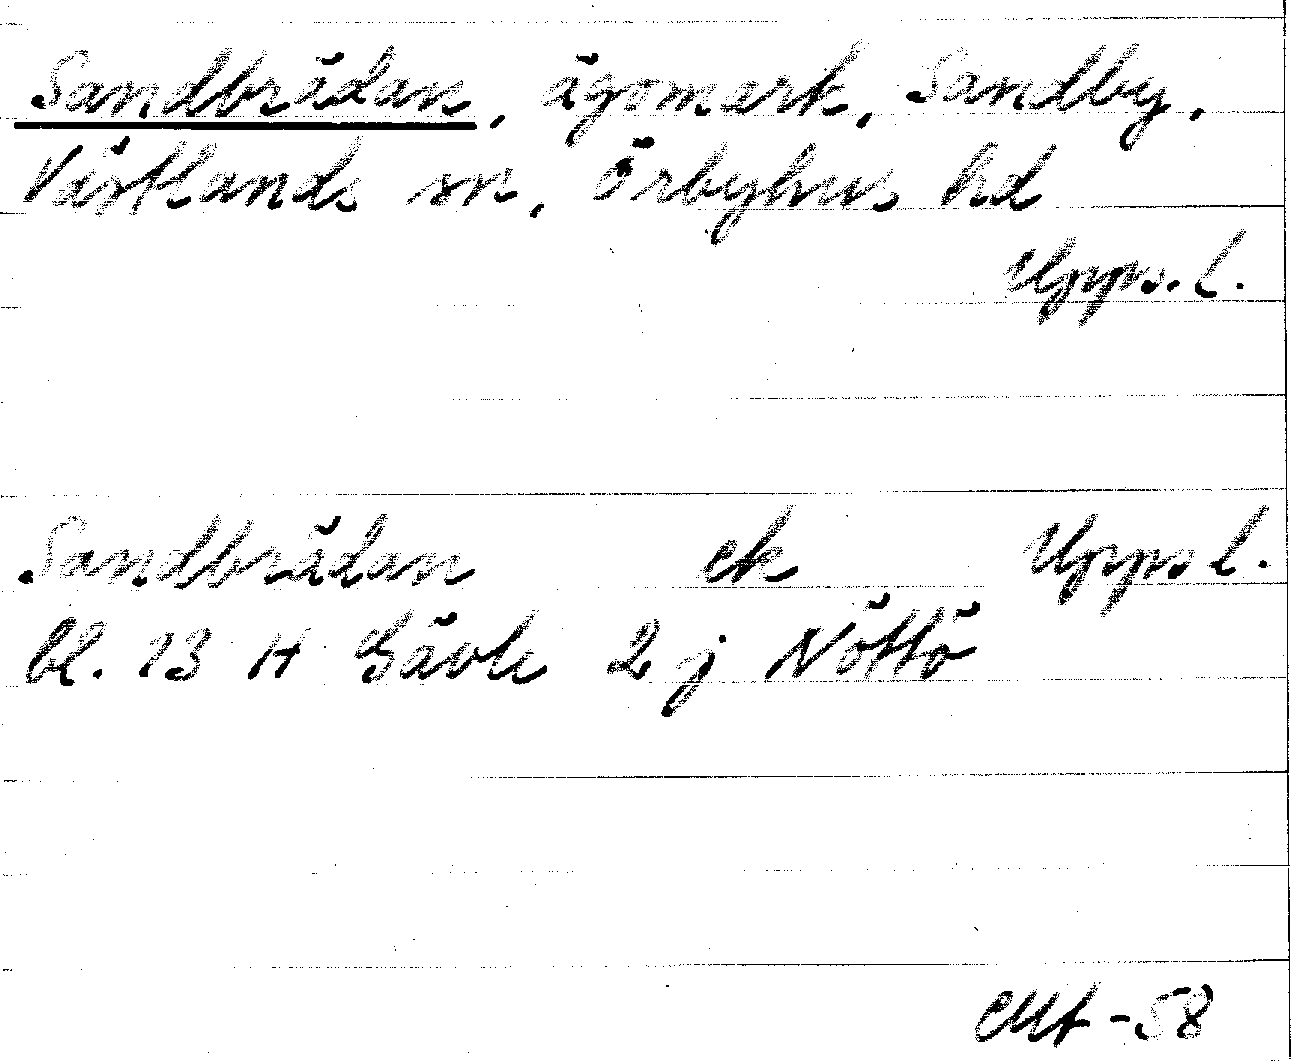 Sandbrädan, ägomark, Sandby,
Västlands sn, Örbyhus hd
Upps. l.
Sandbrädan ek Upps l.
bl. 13 H Gävle 2 j Nöttö